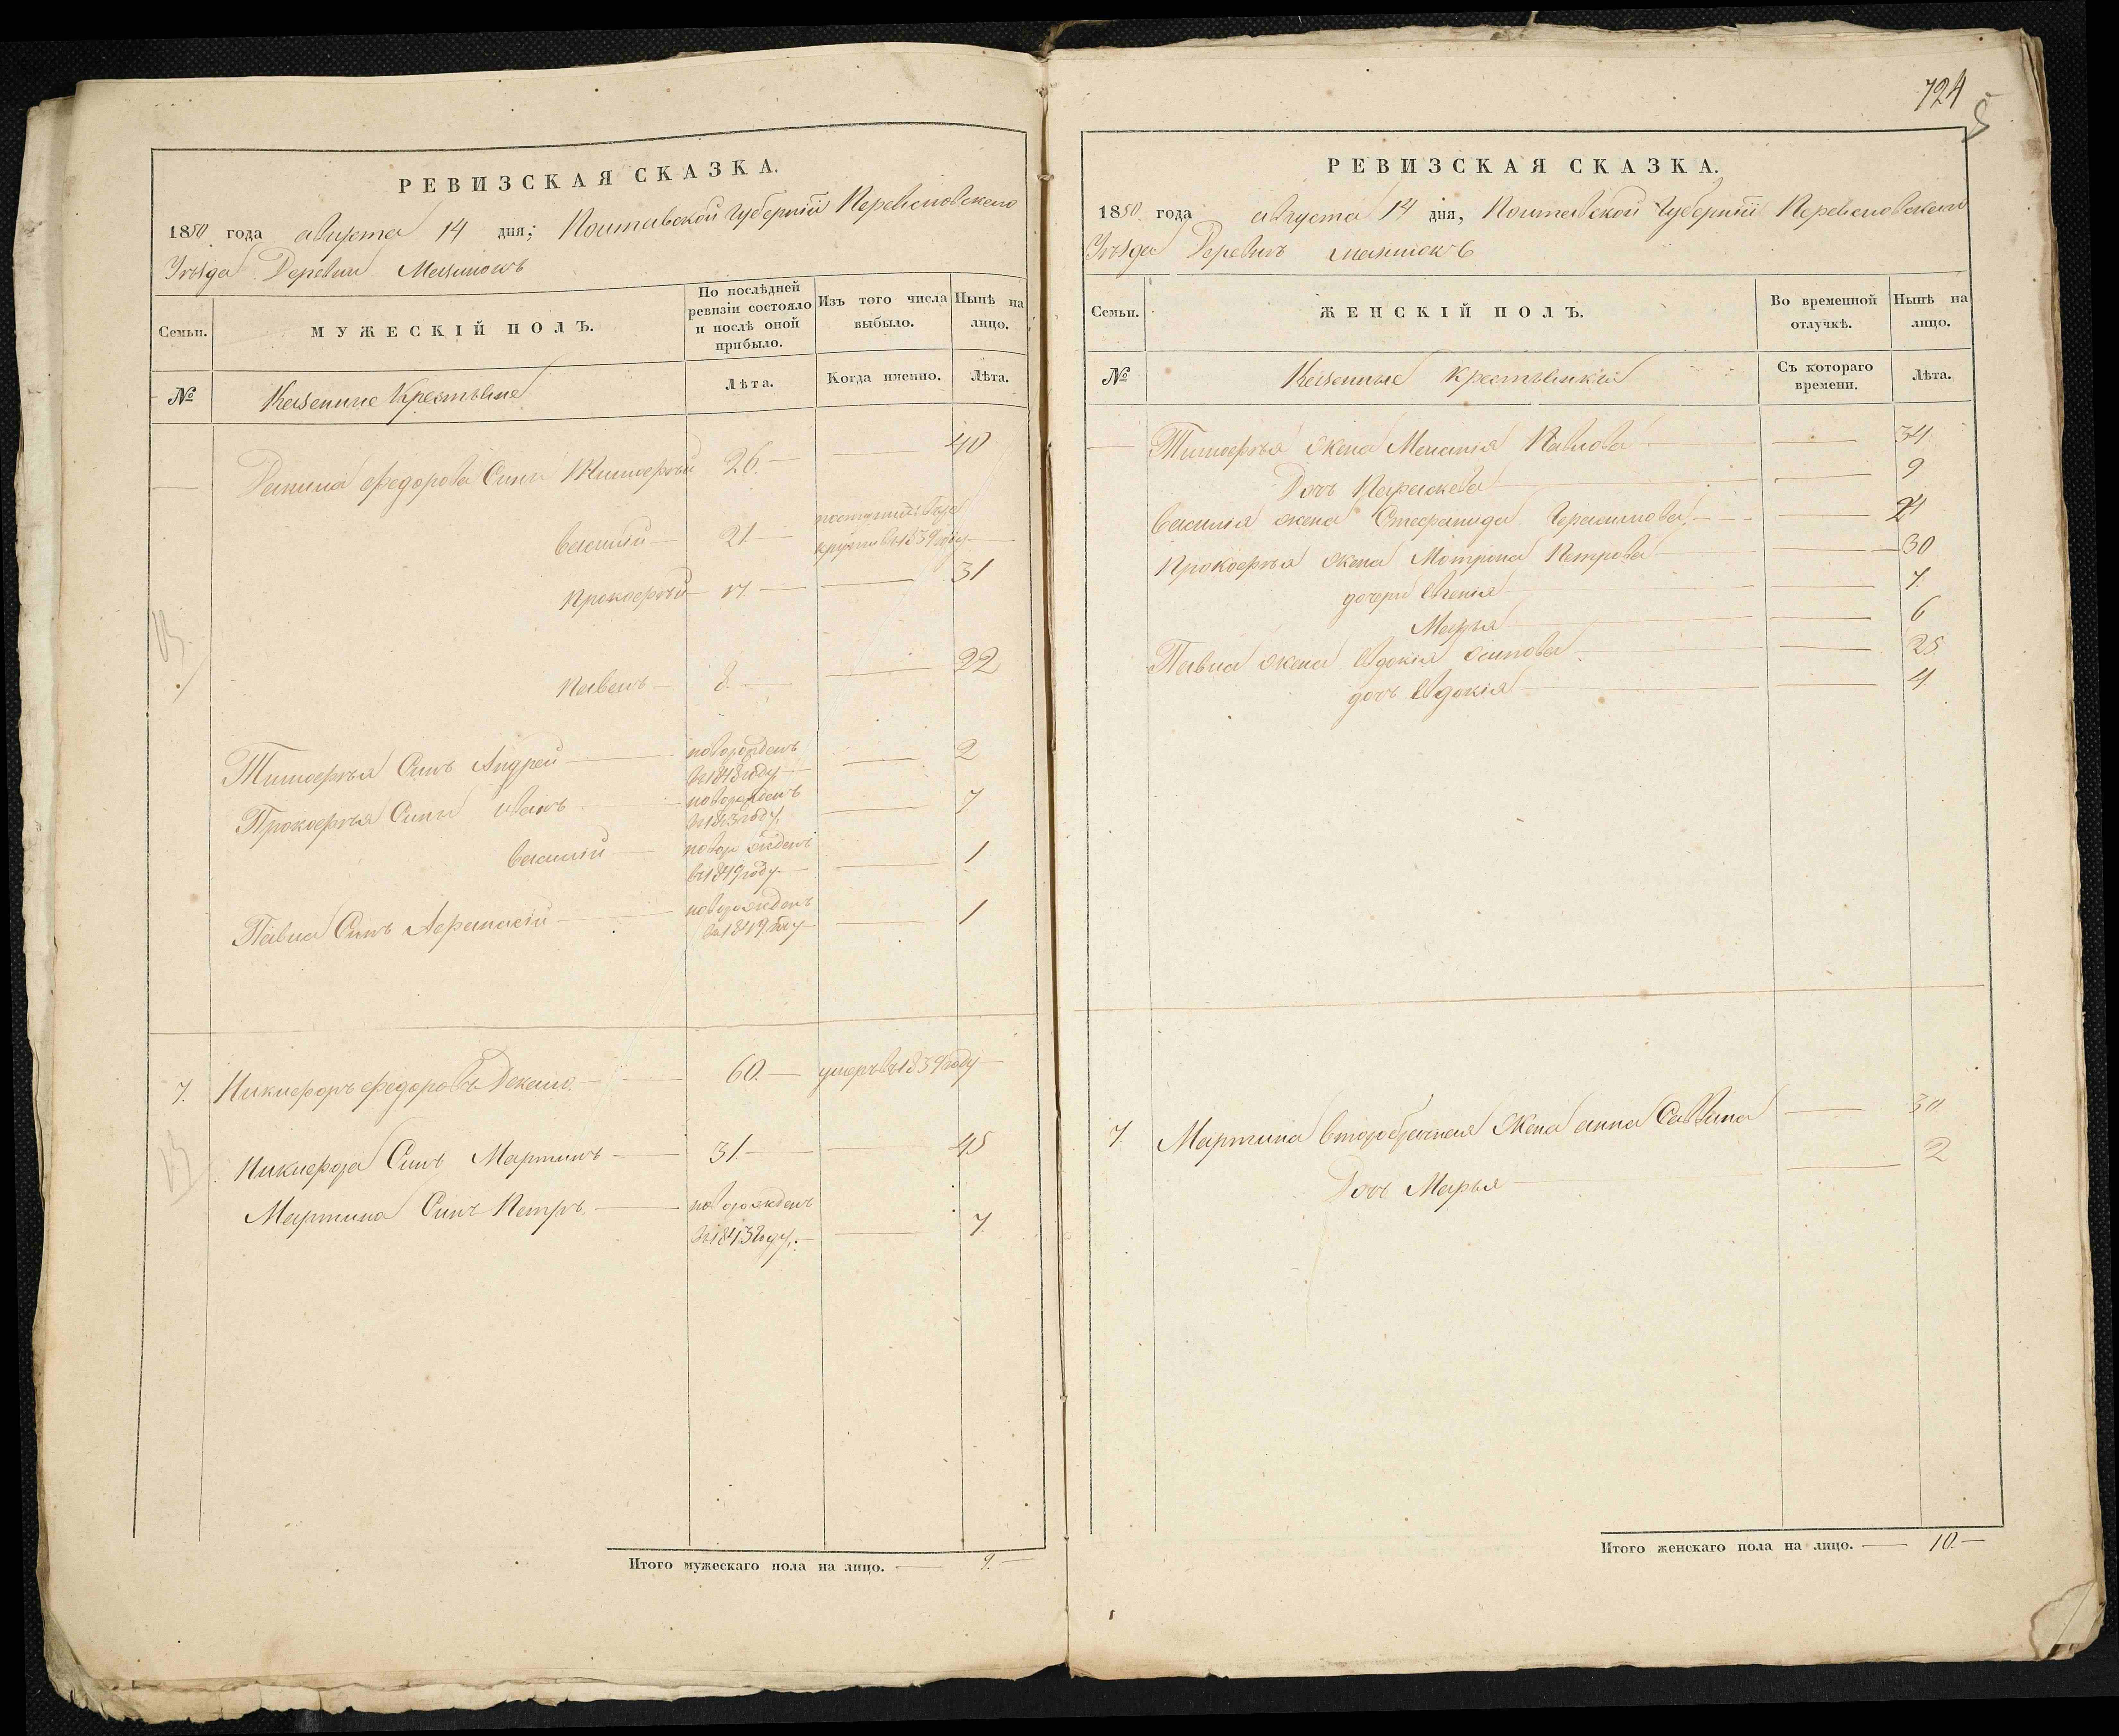 724
5
РЕВИЗСКАЯ СКАЗКА.
1850 года августа 14 дня; Полтавской Губерніи Переяславскаго
Уѣзда Деревни
Семьи.
МУЖЕСКІЙ ПОЛЪ.
По послѣдней ревизіи состояло и послѣ оной прибыло.
Изъ того числа выбыло.
Нынѣ на лицо.
№
Казенные Крестьяне
Лѣта.
Когда именно.
Лѣта.
Данила Федорова Сыны Тимофей 26. 40
Василий 21. поступилъ въ рекруты въ 1839 году
Прокофий 17. 31
Павелъ 8. 22
Тимофея Сынъ Андрей новорожденъ въ 1848 году 2
Прокофья Сыны Иванъ новорожденъ въ 1843 году. 7
Василий новорожденъ въ 1849 году 1
Павла Сынъ Афанасий новорожденъ въ 1849 году 1
7. Никифоръ Федоровъ 60. умеръ въ 1839 году
Никифора Сынъ Мартинъ 31 45
Мартина Сынъ Петръ новорожденъ въ 1843 году. 7
Итого мужескаго пола на лицо. 9.
РЕВИЗСКАЯ СКАЗКА.
1850. года августа 14 дня, Полтавской Губерніи Переяславскаго
Уѣзда Деревни
Семьи.
ЖЕНСКІЙ ПОЛЪ.
Во временной отлучкѣ.
Нынѣ на лицо.
№
Казенные крестьянки
Съ котораго времени.
Лѣта.
Тимофея жена Меланія Павлова 34
Дочь Параскева 9
Василія жена Стефанида Герасимова
Прокофья жена Мотрона Петрова 30
дочери Евгенія 7.
Марья 6
Павла жена Евдокія Осипова 25
дочь Евдокія 4
7. Мартина второбрачная Жена анна Саввина 30
Дочь Марья 2
Итого женскаго пола на лицо. 10.